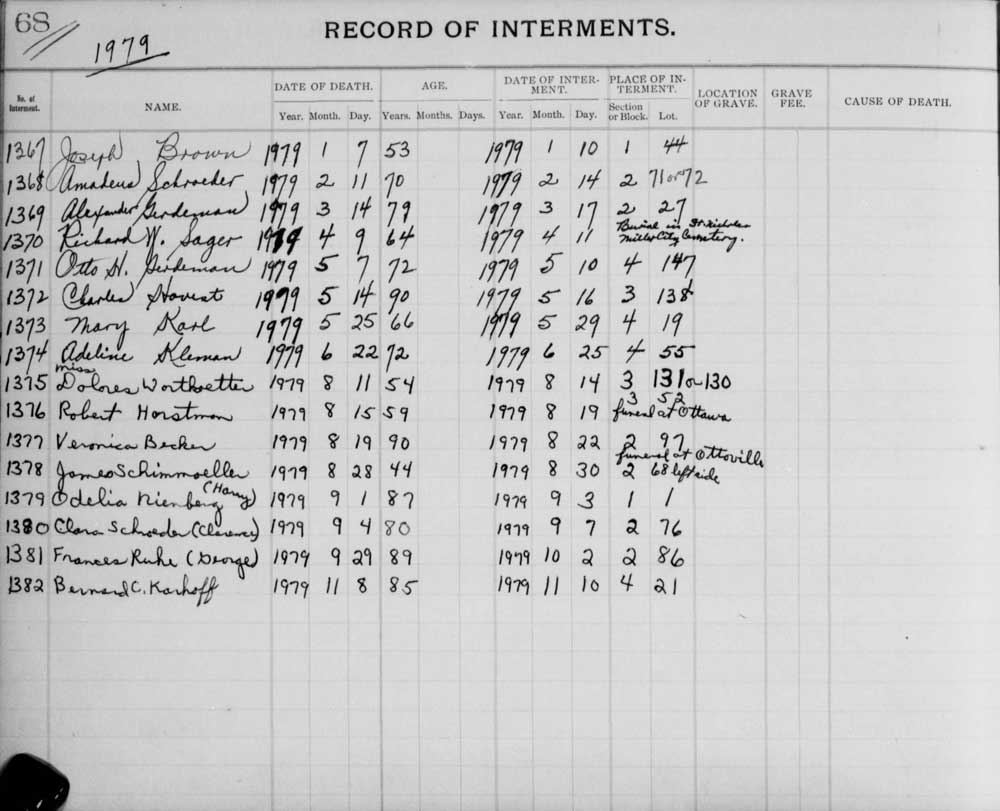 68
1979
RECORD OF INTERMENTS.
No. of Interment. NAME. DATE OF DEATH. AGE. DATE OF INTERMENT. PLACE OF INTERMENT. LOCATION OF GRAVE. GRAVE FEE. CAUSE OF DEATH.
Year. Month. Day. Years. Months. Days. Year. Month. Day. Section or Block. Lot.
1367 Joseph Brown 1979 1 7 53 1979 1 10 1 44
1368 Amadeus Schroeder 1979 2 11 70 1979 2 14 2 71 or 72
1369 Alexander Gerdeman 1979 3 14 79 1979 3 17 2 27
Burial in St. Nicholas
1370 Richard W. Sager 1979 4 9 64 1979 4 11 Miller City Cemetery.
1371 Otto H. Gerdeman 1979 5 7 72 1979 5 10 4 147
1372 Charles Hovest 1979 5 14 90 1979 5 16 3 138
1373 Mary Karl 1979 5 25 66 1979 5 29 4 19
1374 Adeline Kleman 1979 6 22 72 1979 6 25 4 55
Miss
1375 Dolores 1979 8 11 54 1979 8 14 3 131 or 130
3 52
1376 Robert Horstman 1979 8 15 59 1979 8 19 funeral at Ottawa
1377 Veronica Becker 1979 8 19 90 1979 8 22 2 97
funeral at Ottoville
1378 James Schimmoeller 1979 8 28 44 1979 8 30 2 68 left side
(Harry)
1379 Odelia Nienberg 1979 9 1 87 1979 9 3 1 1
1380 Clara Schroeder (Clarence) 1979 9 4 80 1979 9 7 2 76
1381 Frances Ruhe (George) 1979 9 29 89 1979 10 2 2 86
1382 Bernard C. Karhoff 1979 11 8 85 1979 11 10 4 21